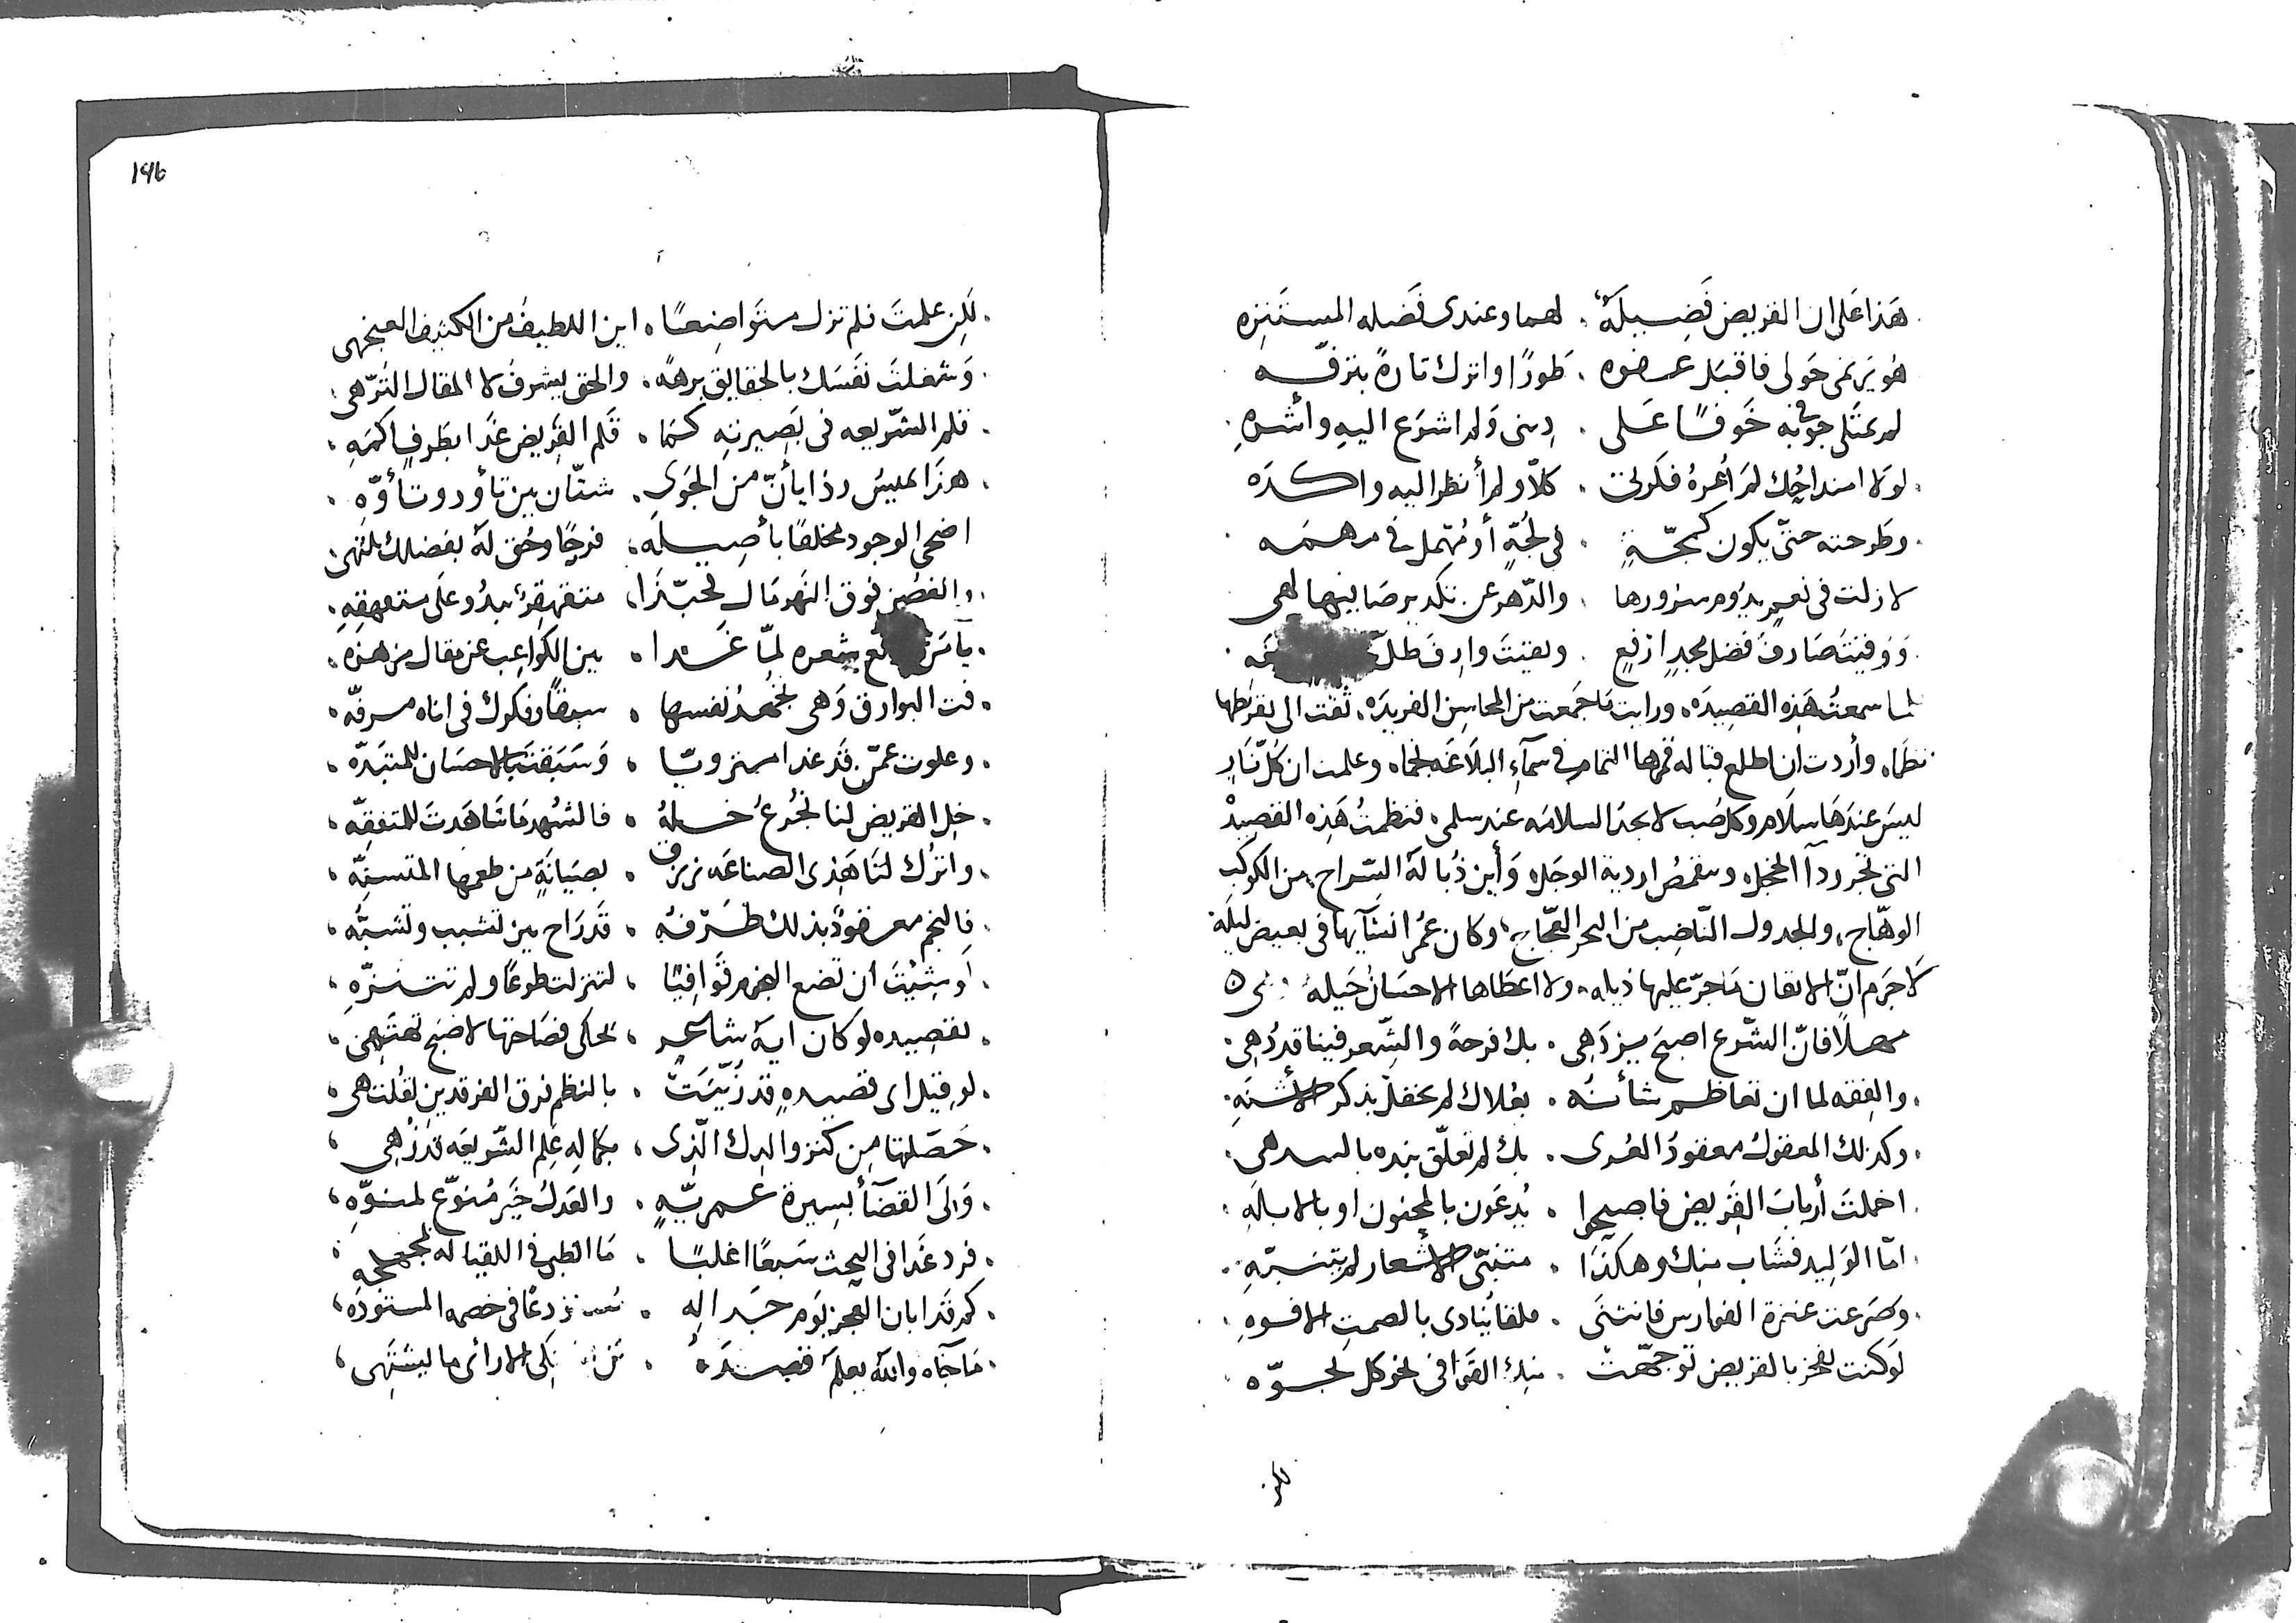 هَذا عَلى ان القريض فَضِيلَةٌ . لهما وعندى فَضله المستَنزِه
هُو يَرتمى حَولى فاقبَل عضوه . طَورًا واترك تارةً بترفّه
لم يمثلى جوفى به خَوفًا عَلى . دِينى وَلم اشرَع اليهِ وأشرهِ
لولا امتداحُك لمَ اُعِرهُ فكرتى . كلاّ ولم أنظر اليه واكدَه
وطرحته حتّى يكون كمجّةٍ . فى لجّةٍ أو مُهملٍ فى مهمَه
لا زلت فى نعيمٍ يدُوم سرورها . والدّهر عن تكدير صَافيها لهى
وَوُقيتَ صَارف فضل مجدٍ ارفعٍ . وبقيتَ وارِف ظلّ
لما سمعتُ هَذه القصِيدَه، ورايت مَا جَمعت من المحاسِن الفريدَه، تُقت الى تقريظها
نظمًا، وأردت ان اطلع قبَاله قمرها التمام فى سمآءِ البلَاغَه نجمًا، وعلمت ان كُلّ نَارٍ
ليسَ عندهَا سلَام وكل صَب لا يجد السلامَه عند سلمى، فنظمتُ هَذه القصِيدْ
التى تجر ردآ الخجل، وتتقمصُ اردية الوجَل، وَأين ذُبالة السّراج، من الكوكَب
الوهّاج، والجدول النّاضِب من البحر العجّاج، وكان عُمر انشَآيها فى بعض ليلَةٍ
لَا جَرَم انّ الاتقان مَا جرّ عليها ذيله، ولا اعطَاها الاحسَانُ خَيلهُ
مهلًا فانّ الشّرع اصبَح يزدَهى . بك فرحةً والشِعر فينا قد دُهِى
والفِقه لما ان تعَاظم شأنُه . بعُلاك لم يحفل بذكر الأشنَهِ
وكذلك المعقولُ معقودُ العُرى . بك لم تعلّق يَده بالسدهى
اخملتَ أربابَ القريض فاصبحوا . يُدعَون بالمجنون او بالابلَهِ
امّا الوَلِيد فشَاب منك وهكذَا . متنبّى الأشعار لم يتنبّهِ
وصَرعت عنترة الفوارس فانثنَى . ملقًا يُنادى بالصمتِ الافوهِ
لَو كنت تفخر بالقريض توجهّت . منك القوَافى نحو كل تحوّه
لكن
196
لَكِن علمتَ فلم تزل متوَاضِعًا . اين اللطيفُ من الكثيف العنجهى
وَشغلتَ نفسَك بالحقايق برهةً . والحق يشرفُ لا المقال التُرّهى
قلم الشّريعه فى بَصِيرته كمَا . قلم القريض غَدا بطَرفٍ اكمَهِ
هذا يميسُ وذا يأنّ من الجَوى . شتّان بين تأود وتأوّه
اضحى الوجود مخلقًا بأصِيله . فرحًا وحُق لهَ بفضلك يَنتهى
والغصُن فوق النّهر مَال تحبّذا . متقهقرًا يبدُو على متقهقهِ
يا مَن بشعره لمّا غَدا . بين الكواعِب عن مقال مزهزه
فت البوارق وَهى تجُهدُ نفسها . سبقًا وفكرك فى اناه مرفّه
وعلوت عمّن قد غدا متروّيًا . وَسَبَقت بالاحسَان للمتبَدّه
خل القريض لنا نجُرعُ خسله . فالشهد مَا شَاهَدتَ للمتفقّه
واترُك لنَا هَذى الصناعَه نرتزق . بصيَانَةٍ من طعمها المتسنّه
فالنجم معضودٌ بذلك طَرفهُ . قَد رَاح بين تشبب وتشبُّه
اَو شِئتَ ان تضع النجوم قَوافيًا . لتنزلت طوعًا ولم تتنزّهِ
لقصِيده لو كان ايةَ شاعرٍ . يحكى فصَاحتها لاصْبح تمتَهِى
لو قيل اى قصيدهٍ قد زُيّنَتْ . بالنظم فوق الفرقدين لقُلت هى
حَصّلتها من كنز والدك الّذى . بكماله عِلم الشّريعَه قد زُهِى
وَلىَ القضَآ بسِيرة عمريّهٍ . والعَدلُ خَير مُنوّع لمنوّهِ
فرد غَدا فى البحث سَبعًا اغلبًا . مَا الظبى فى اللقيا له
كم قَد ابان العجز يَوم جدَاله . فى خصمه المستودَه
مَا جَآه واللهُ يعلم قصدَه . الا رأى ما يشتَهى